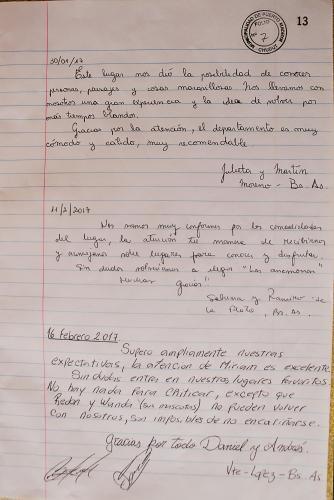 MUNICIPALIDAD DE PUERTO MADRYN
FOLIO
Nº 7
CHUBUT
13
30/01/17
Este lugar nos dió la posibilidad de conocer
personas, paisajes y cosas maravillosas. Nos llevamos con
nosotros una gran experiencia y la idea de volver por
más tiempo
Gracias por la atención, el departamento es muy
cómodo y calido, muy recomendable
Julieta y Martín
Moreno - Bs. As.
11/2/2017
Nos vamos muy conformes por las comodidades
del lugar, la atención tu manera de recibirnos
y sobre lugares para conocer y disfrutar.
Sin dudas volveremos a elegir "Las anemonas"
Muchas Gracias.
Sabrina y Ramiro de
La Plata, Bs. As.
16 Febrero 2017.
Supero ampliamente nuestras
expectativas, la atencion de Miriam es excelente.
Sin dudas entra en nuestros lugares favoritos.
No hay nada para criticar, excepto que
y Wanda (sus mascotas) no pueden volver
con nosotros, son imposibles de no encariñarse.
Gracias por todo Daniel y Andrea.
Vte-Lopez - Bs. As